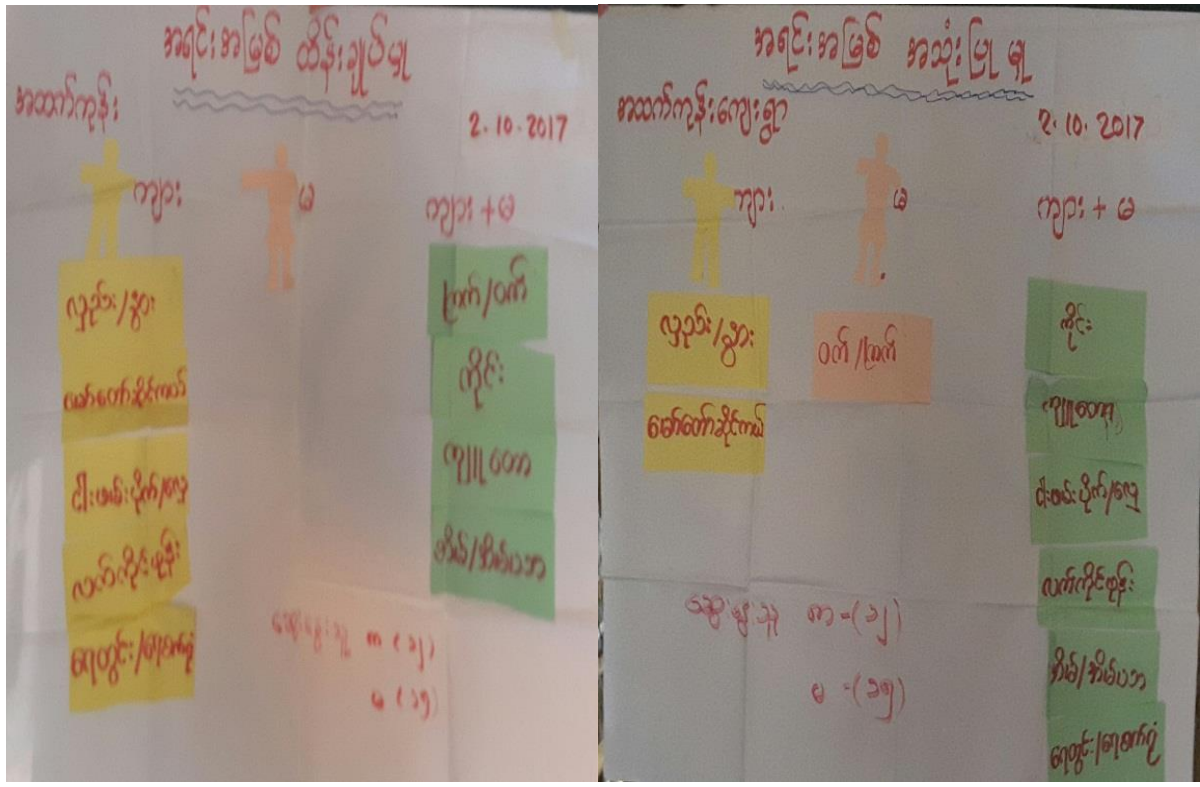 အရင်းအမြစ် ထိန်းချုပ်မှု
အထက်ကုန်း
2.10.2017
ကျား
မ
ကျား + မ
လှည်း/နွား
မော်တော်ဆိုင်ကယ်
ငါးဖမ်းပိုက်/လှေ
လက်ကိုင်ဖုန်း
ရေတွင်း/ရေစက်ရုံ
ကြက်/ဝက်
ကိုင်း
ကျူတော
အိမ်/အိမ်ပဘ
ဆွေးနွေးသူ ကာ (၁၂)
မ (၁၅)
အရင်းအမြစ် အသုံးပြုမှု
အထက်ကုန်းကျေးရွာ
2.10.2017
ကျား
မ
ကျား + မ
လှည်း/နွား
မော်တော်ဆိုင်ကယ်
ဝက်/ကြက်
ကိုင်း
ကျူတော
ငါးဖမ်းပိုက်/လှေ
လက်ကိုင်ဖုန်း
အိမ်/အိမ်ပဘ
ရေတွင်း/ရေစက်ရုံ
ဆွေးနွေးသူ ကာ =(၁၂)
မ =(၁၅)